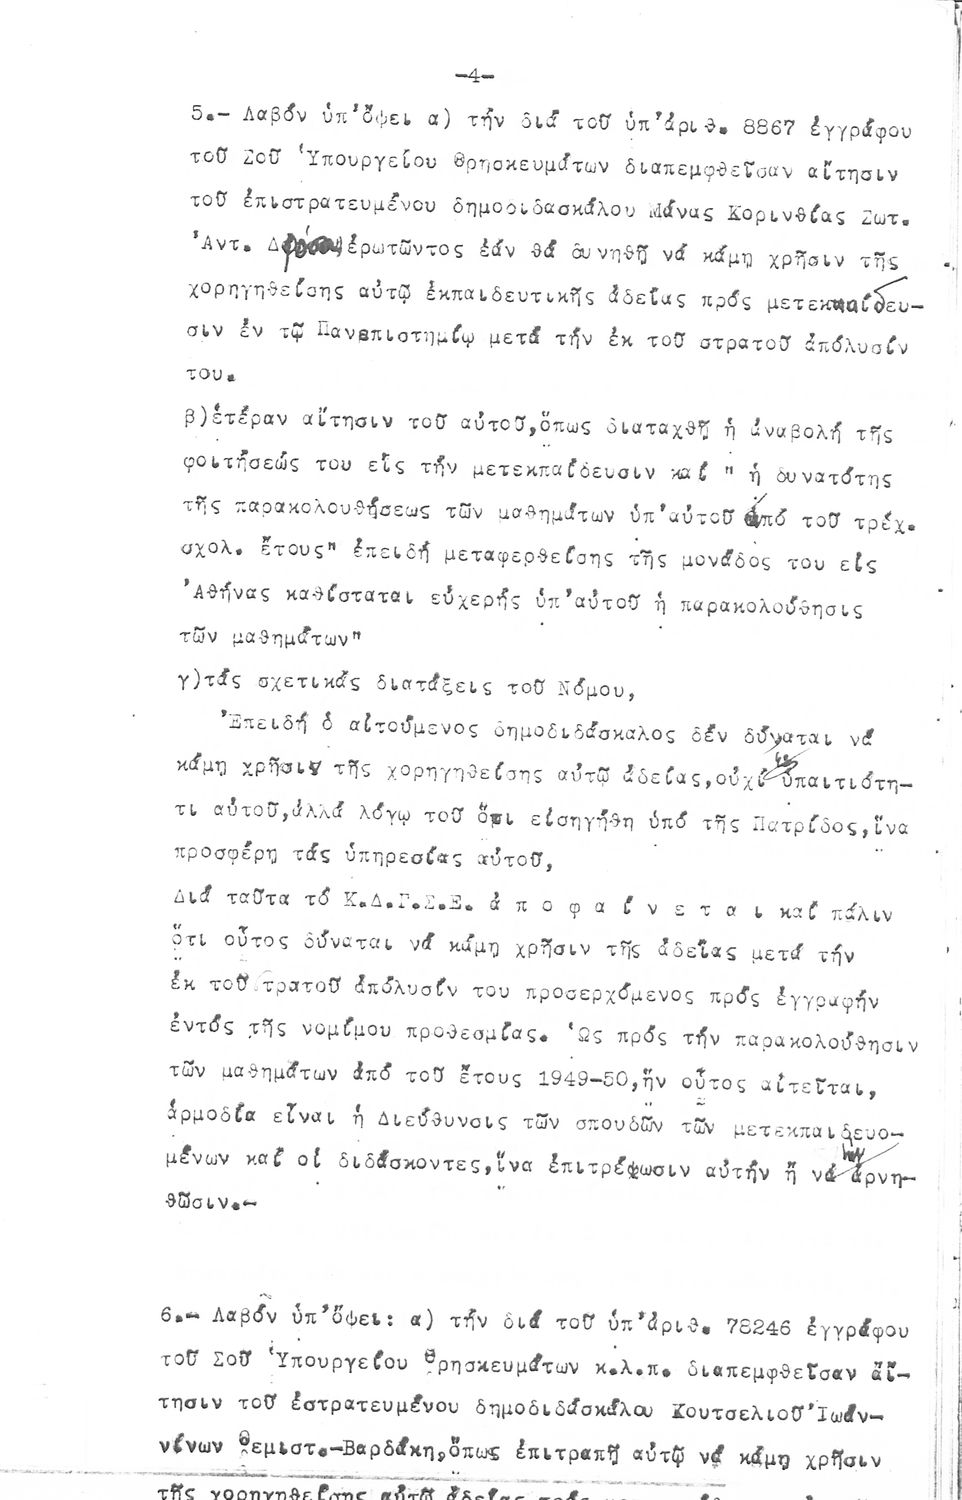 -4-
5.- Λαβόν ὑπ'ὄψει α) τήν διά τοῦ ὑπ'ἀριθ. 8867 ἐγγράφου
τοῦ Σοῦ Ὑπουργείου Θρησκευμάτων διαπεμφθεῖσαν αἴτησιν
τοῦ ἐπιστρατευμένου δημοδιδασκάλου Μάνας Κορινθίας Σωτ.
Ἀντ. ἐρωτῶντος ἐάν θά δυνηθῇ νά κάμη χρῆσιν τῆς
χορηγηθείσης αὐτῷ ἐκπαιδευτικῆς ἀδείας πρός μετεκπαίδευ-
σιν ἐν τῷ Πανεπιστημίῳ μετά τήν ἐκ τοῦ στρατοῦ ἀπόλυσίν
του.
β)ἑτέραν αἴτησιν τοῦ αὐτοῦ,ὅπως διαταχθῇ ἡ ἀναβολή τῆς
φοιτήσεώς του εἰς τήν μετεκπαίδευσιν καί " ἡ δυνατότης
τῆς παρακολουθήσεως τῶν μαθημάτων ὑπ'αὐτοῦ ἀπό τοῦ τρέχ.
σχολ. ἔτους" ἐπειδή μεταφερθείσης τῆς μονάδος του εἰς
Ἀθήνας καθίσταται εὐχερής ὑπ'αὐτοῦ ἡ παρακολούθησις
τῶν μαθημάτων"
γ)τάς σχετικάς διατάξεις τοῦ Νόμου,
Ἐπειδή ὁ αἰτούμενος δημοδιδάσκαλος δέν δύναται νά
κάμη χρῆσιν τῆς χορηγηθείσης αὐτῷ ἀδείας,οὐχί ὑπαιτιότη-
τι αὐτοῦ,ἀλλά λόγῳ τοῦ ὅτι εἰσηγήθη ὑπό τῆς Πατρίδος,ἵνα
προσφέρη τάς ὑπηρεσίας αὐτοῦ,
Διά ταῦτα τό Κ.Δ.Γ.Σ.Ε. ἀ π ο φ α ί ν ε τ α ι καί πάλιν
ὅτι οὗτος δύναται νά κάμη χρῆσιν τῆς ἀδείας μετά τήν
ἐκ τοῦ στρατοῦ ἀπόλυσίν του προσερχόμενος πρός ἐγγραφήν
ἐντός τῆς νομίμου προθεσμίας. Ὡς πρός τήν παρακολούθησιν
τῶν μαθημάτων ἀπό τοῦ ἔτους 1949-50,ἥν οὗτος αἰτεῖται,
ἁρμοδία εἶναι ἡ Διεύθυνσις τῶν σπουδῶν τῶν μετεκπαιδευο-
μένων καί οἱ διδάσκοντες,ἵνα ἐπιτρέψωσιν αὐτήν ἤ νά ἀρνη-
θῶσιν.-
6.- Λαβόν ὑπ'ὄψει: α) τήν διά τοῦ ὑπ'ἀριθ. 78246 ἐγγράφου
τοῦ Σοῦ Ὑπουργείου Θρησκευμάτων κ.λ.π. διαπεμφθεῖσαν αἴ-
τησιν τοῦ ἐστρατευμένου δημοδιδασκάλου Κουτσελιοῦ Ἰωάν-
νίνων Θεμιστ.-Βαρδάκη,ὅπως ἐπιτραπῇ αὐτῷ νά κάμη χρῆσιν
τῆς χορηγηθείσης αὐτῷ ἀδείας πρός